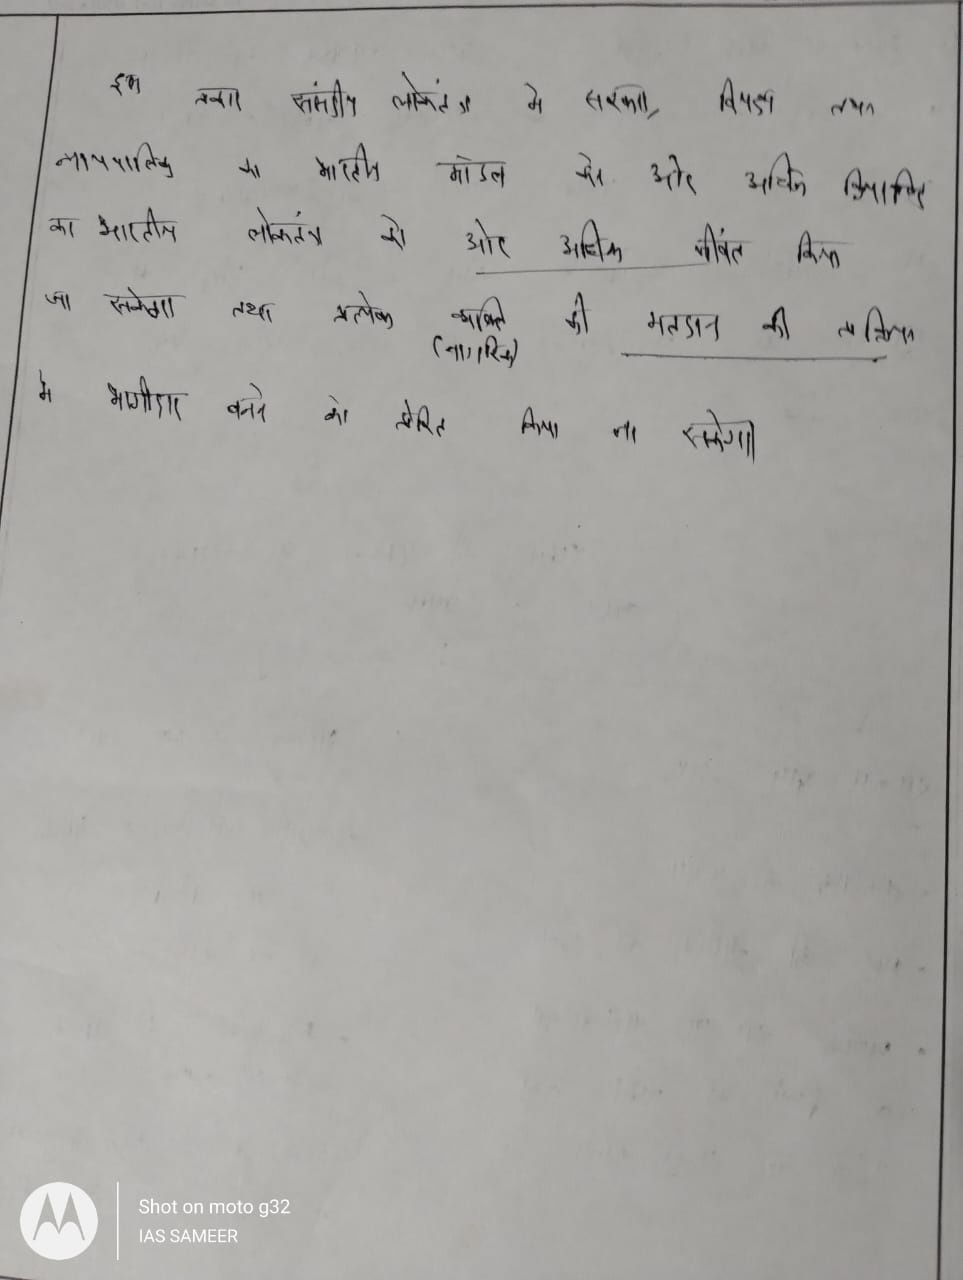 इस प्रकार संसदीय लोकतंत्र मे सरकार, विपक्ष तथा
न्यायपालिका का भारतीय मॉडल को ओर अधिक क्रियान्वित
कर भारतीय लोकतंत्र को ओर अधिक जीवंत किया
जा सकेगा तथा प्रत्येक व्यक्ति की मतदान की प्रक्रिया
(नागरिक)
मे भागीदार बनने को प्रेरित किया जा सकेगा।
Shot on moto g32
IAS SAMEER